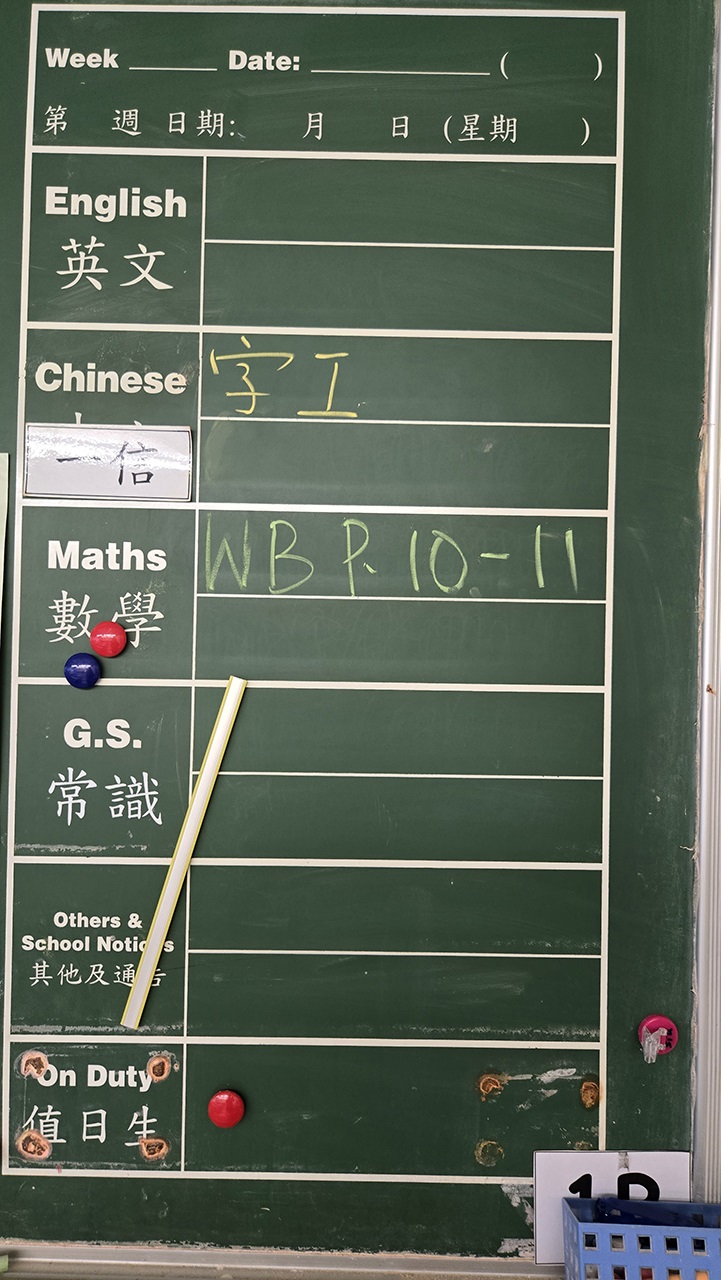 Week _____ Date: __________ ( )
第 週 日期: 月 日 (星期 )
English
英文
Chinese 字工
一信
Maths WB P. 10-11
數學
G.S.
常識
Others &
School Notices
其他及通告
On Duty
值日生